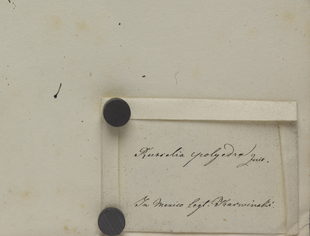 Russelia polyedra Zucc.
In Mexico legt. Karwinski.